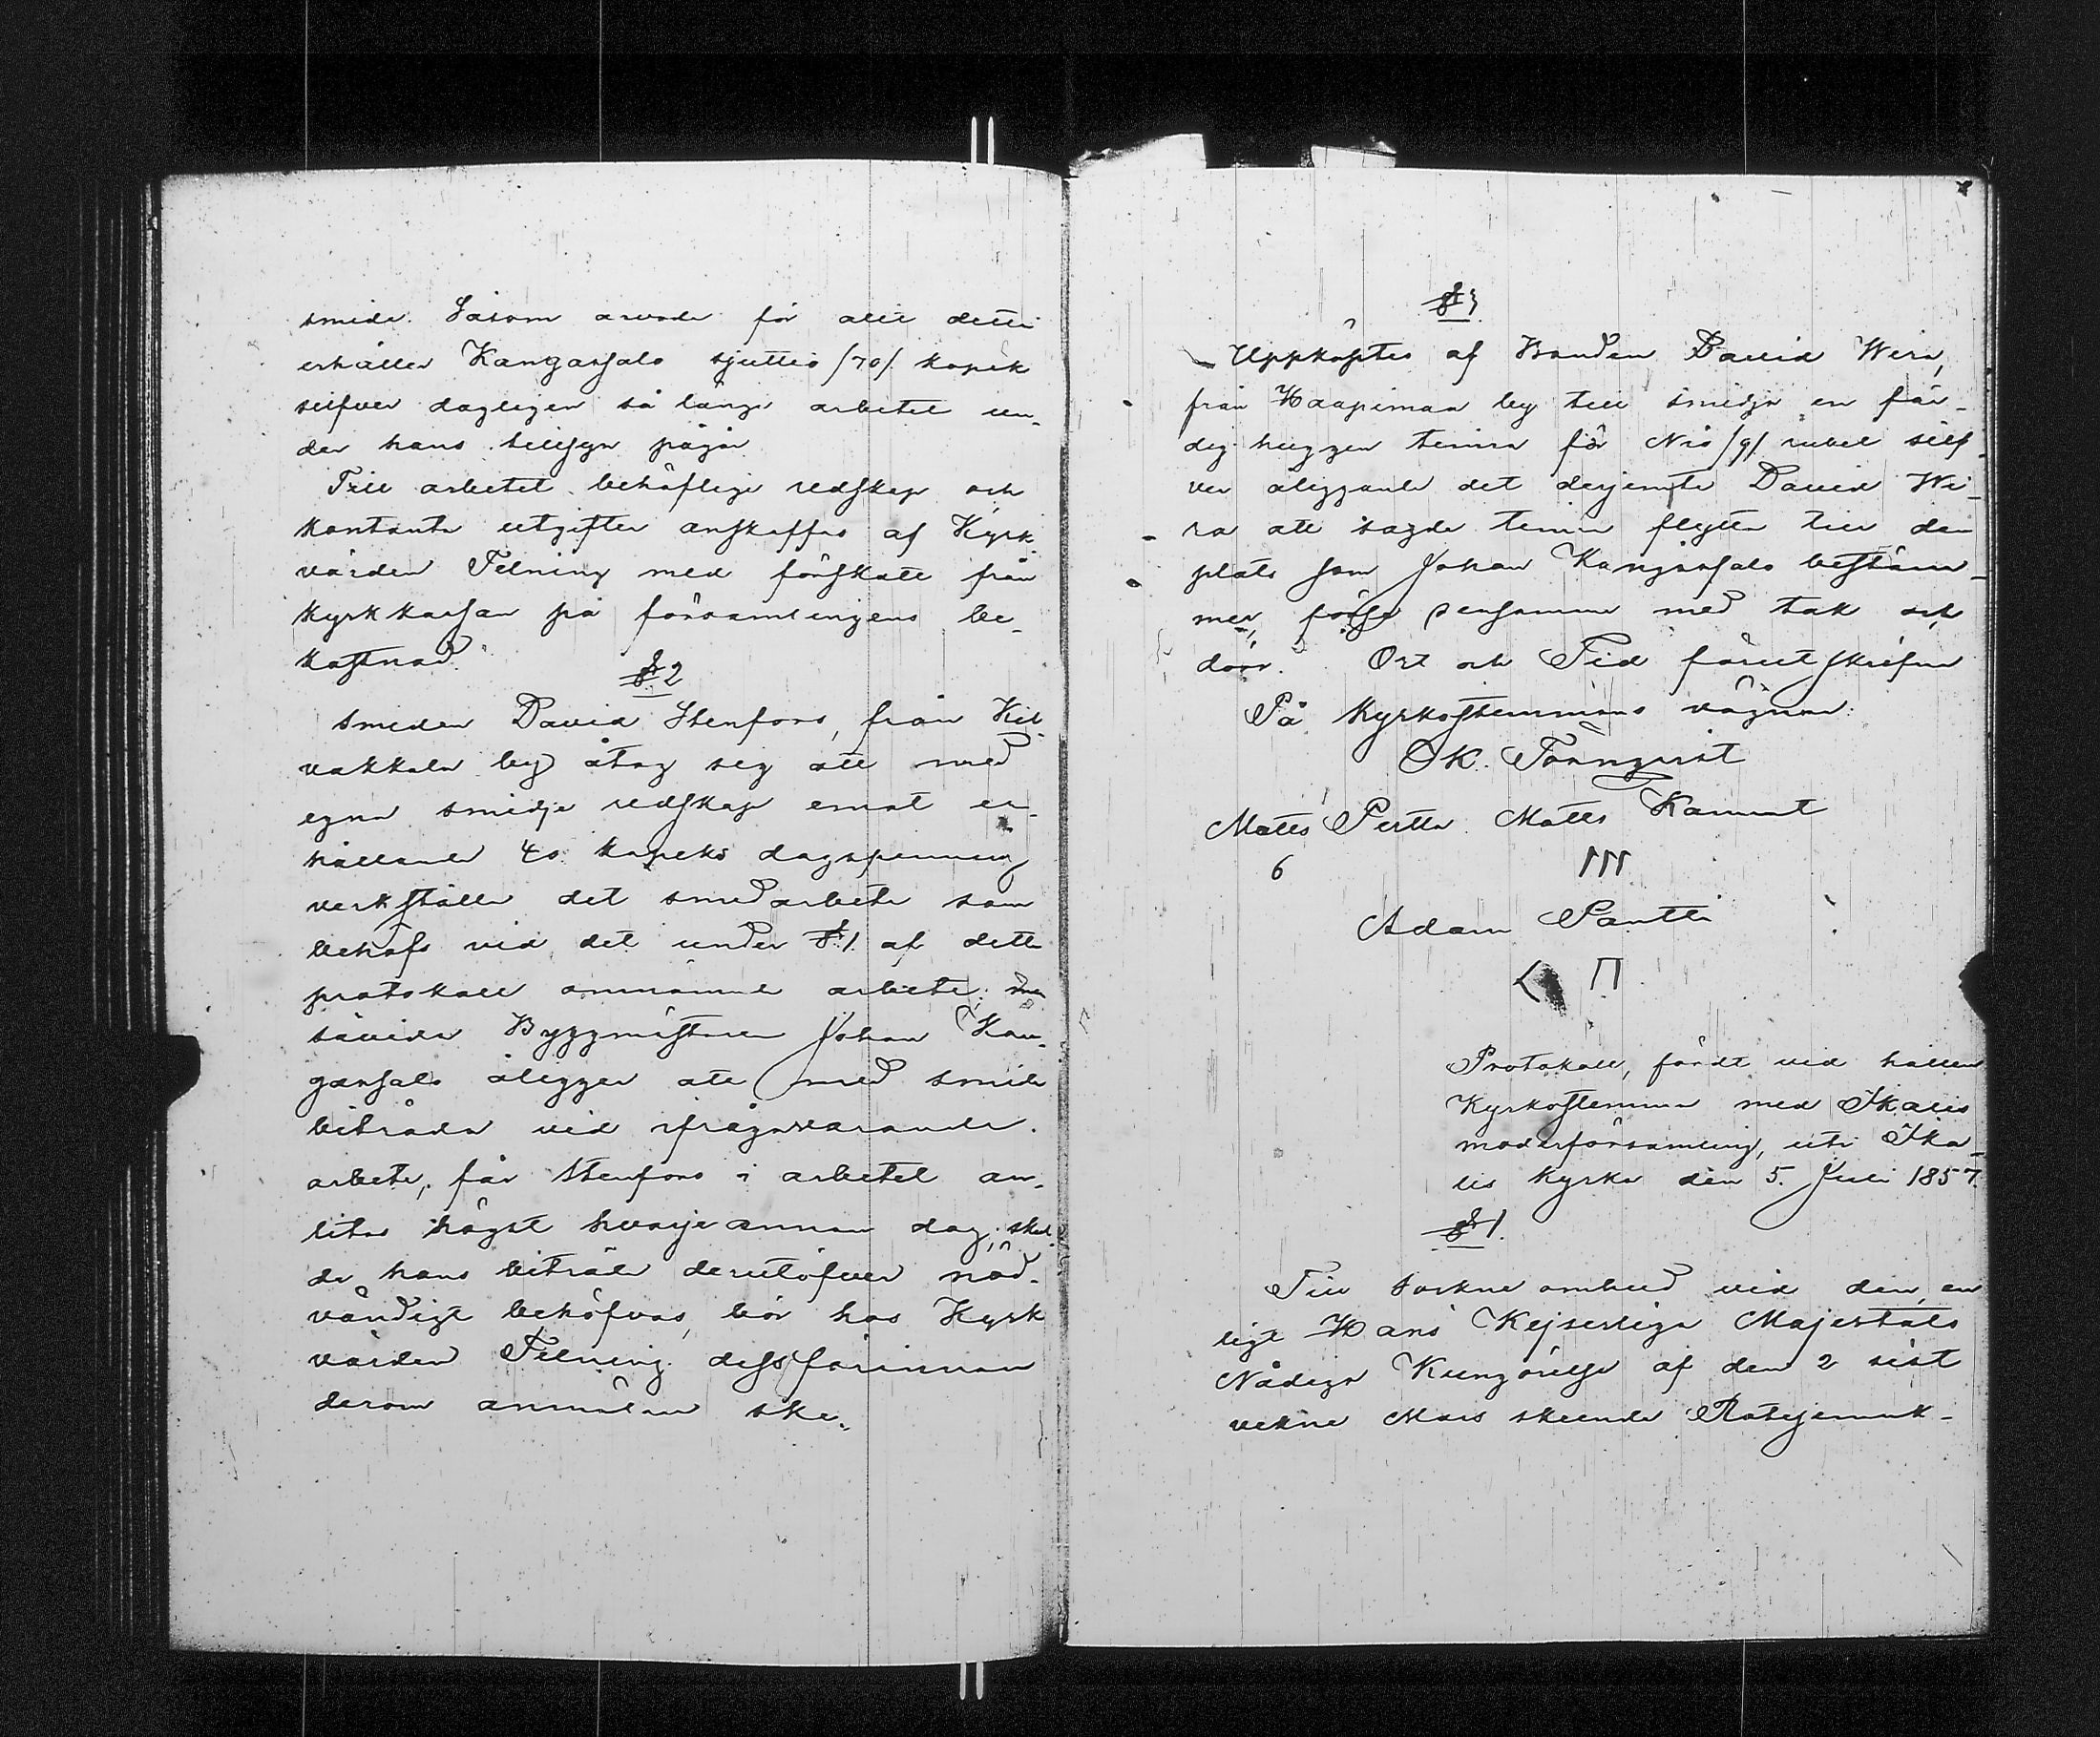 smide. Såsom arvode för allt detta
erhåller Kangasjalo sjuttio /70/. kopek
silfver dagligen så länge arbetet un-
der hans tillsyn pågår
Till arbetet behöflige redskap och
kontanta utgifter anskaffas af Kyrk
värden Telning med förskott från
kyrkkassan på församlingens be-
kostnad.
§ 2
Smeden David Stenfors, från Kil-
vakkala by åtog sig att med
egna smidje redskap emot er-
hållande 40 kopeks dagspenning
verkställa det smedarbete som
behöfs vid det under § 1. af detta
protokoll omnämnde arbete; men
såvida Byggmästaren Johan Kan-
gasjalo åligger att med smide
biträda vid ifrågavarande
arbete, får Stenfors i arbetet an-
litas högst hvarje annan dag; skul-
de hans biträde derutöfver nöd-
vändigt behöfvas, bör hos Kyrk
värden Telning dessförinnan
derom anmälan ske.
§ 3
Uppköptes af Bonden David Wira,
från Haapimaa by till smidja en fär-
dig huggen timra för Nio /9/ rubel silf-
ver åliggande det derjemte David Wi-
ra att sagde timra flytta till den
plats som Johan Kangasjalo bestäm-
mer, förse densamma med tak och
dörr. Ort och Tid förutskrifne
På Kyrkostemmans vägnar:
O K. Törnqvist
Matts Perttu Matts Kammt
6 111
Adam Pantti
Π
Protokoll, fördt vid hållen
Kyrkostemma med Ikalis
moderförsamling, uti Ika-
lis kyrka den 5. Juli 1857.
§ 1.
Till sockne ombud vid den, en
ligt Hans Kejserliga Majestäts
Nådiga Kungörelse af den 2 sist
vekne Mars skeende Rotejemnk-